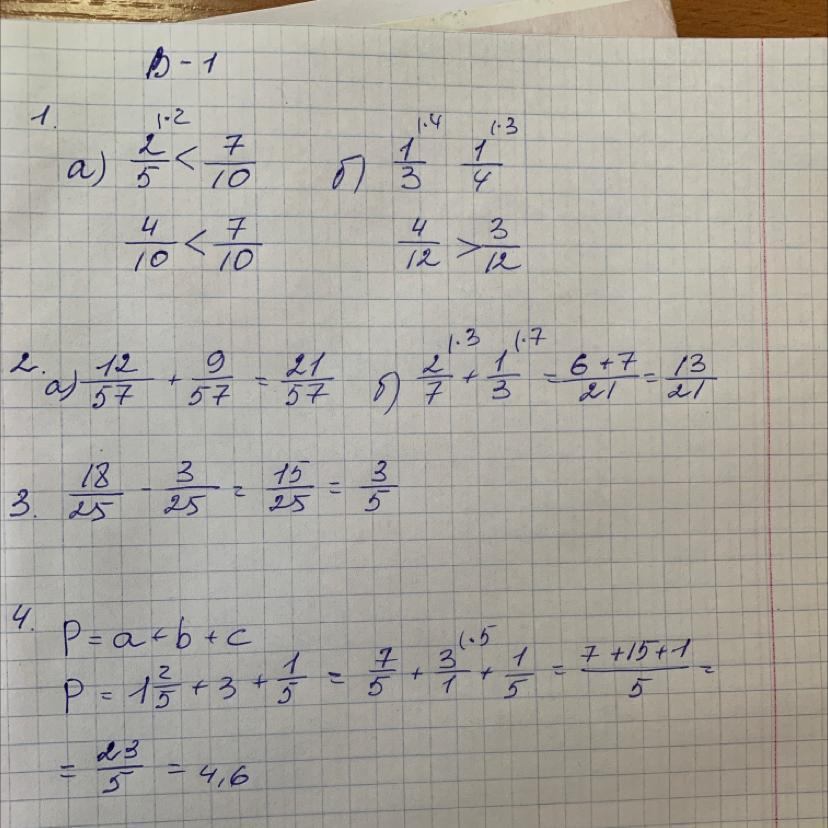 В - 1
1.
а) 2/5 (·2 < 7/10 б) 1/3 (·4 1/4 (·3
4/10 < 7/10 4/12 > 3/12
2. а) 12/57 + 9/57 = 21/57 б) 2/7 (·3 + 1/3 (·7 = 6+7/21 = 13/21
3. 18/25 - 3/25 = 15/25 = 3/5
4. P = a + b + c
P = 1 2/5 + 3 + 1/5 = 7/5 + 3/1 (·5 + 1/5 = 7+15+1/5 =
= 23/5 = 4,6